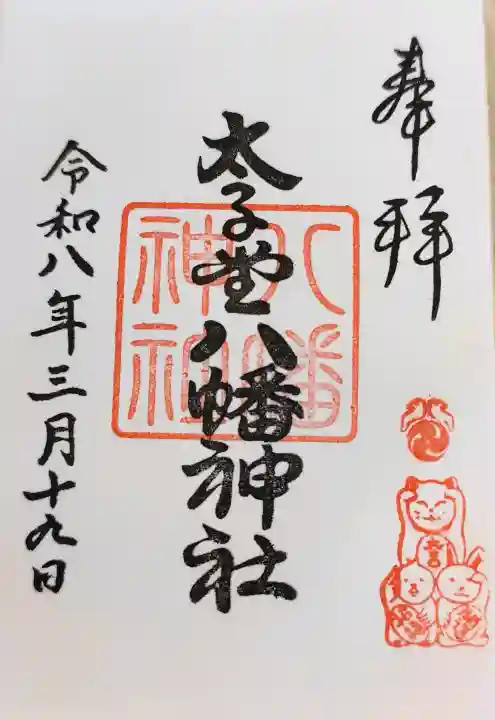 奉拝
太子堂八幡神社
八幡
神社
令和八年三月十九日